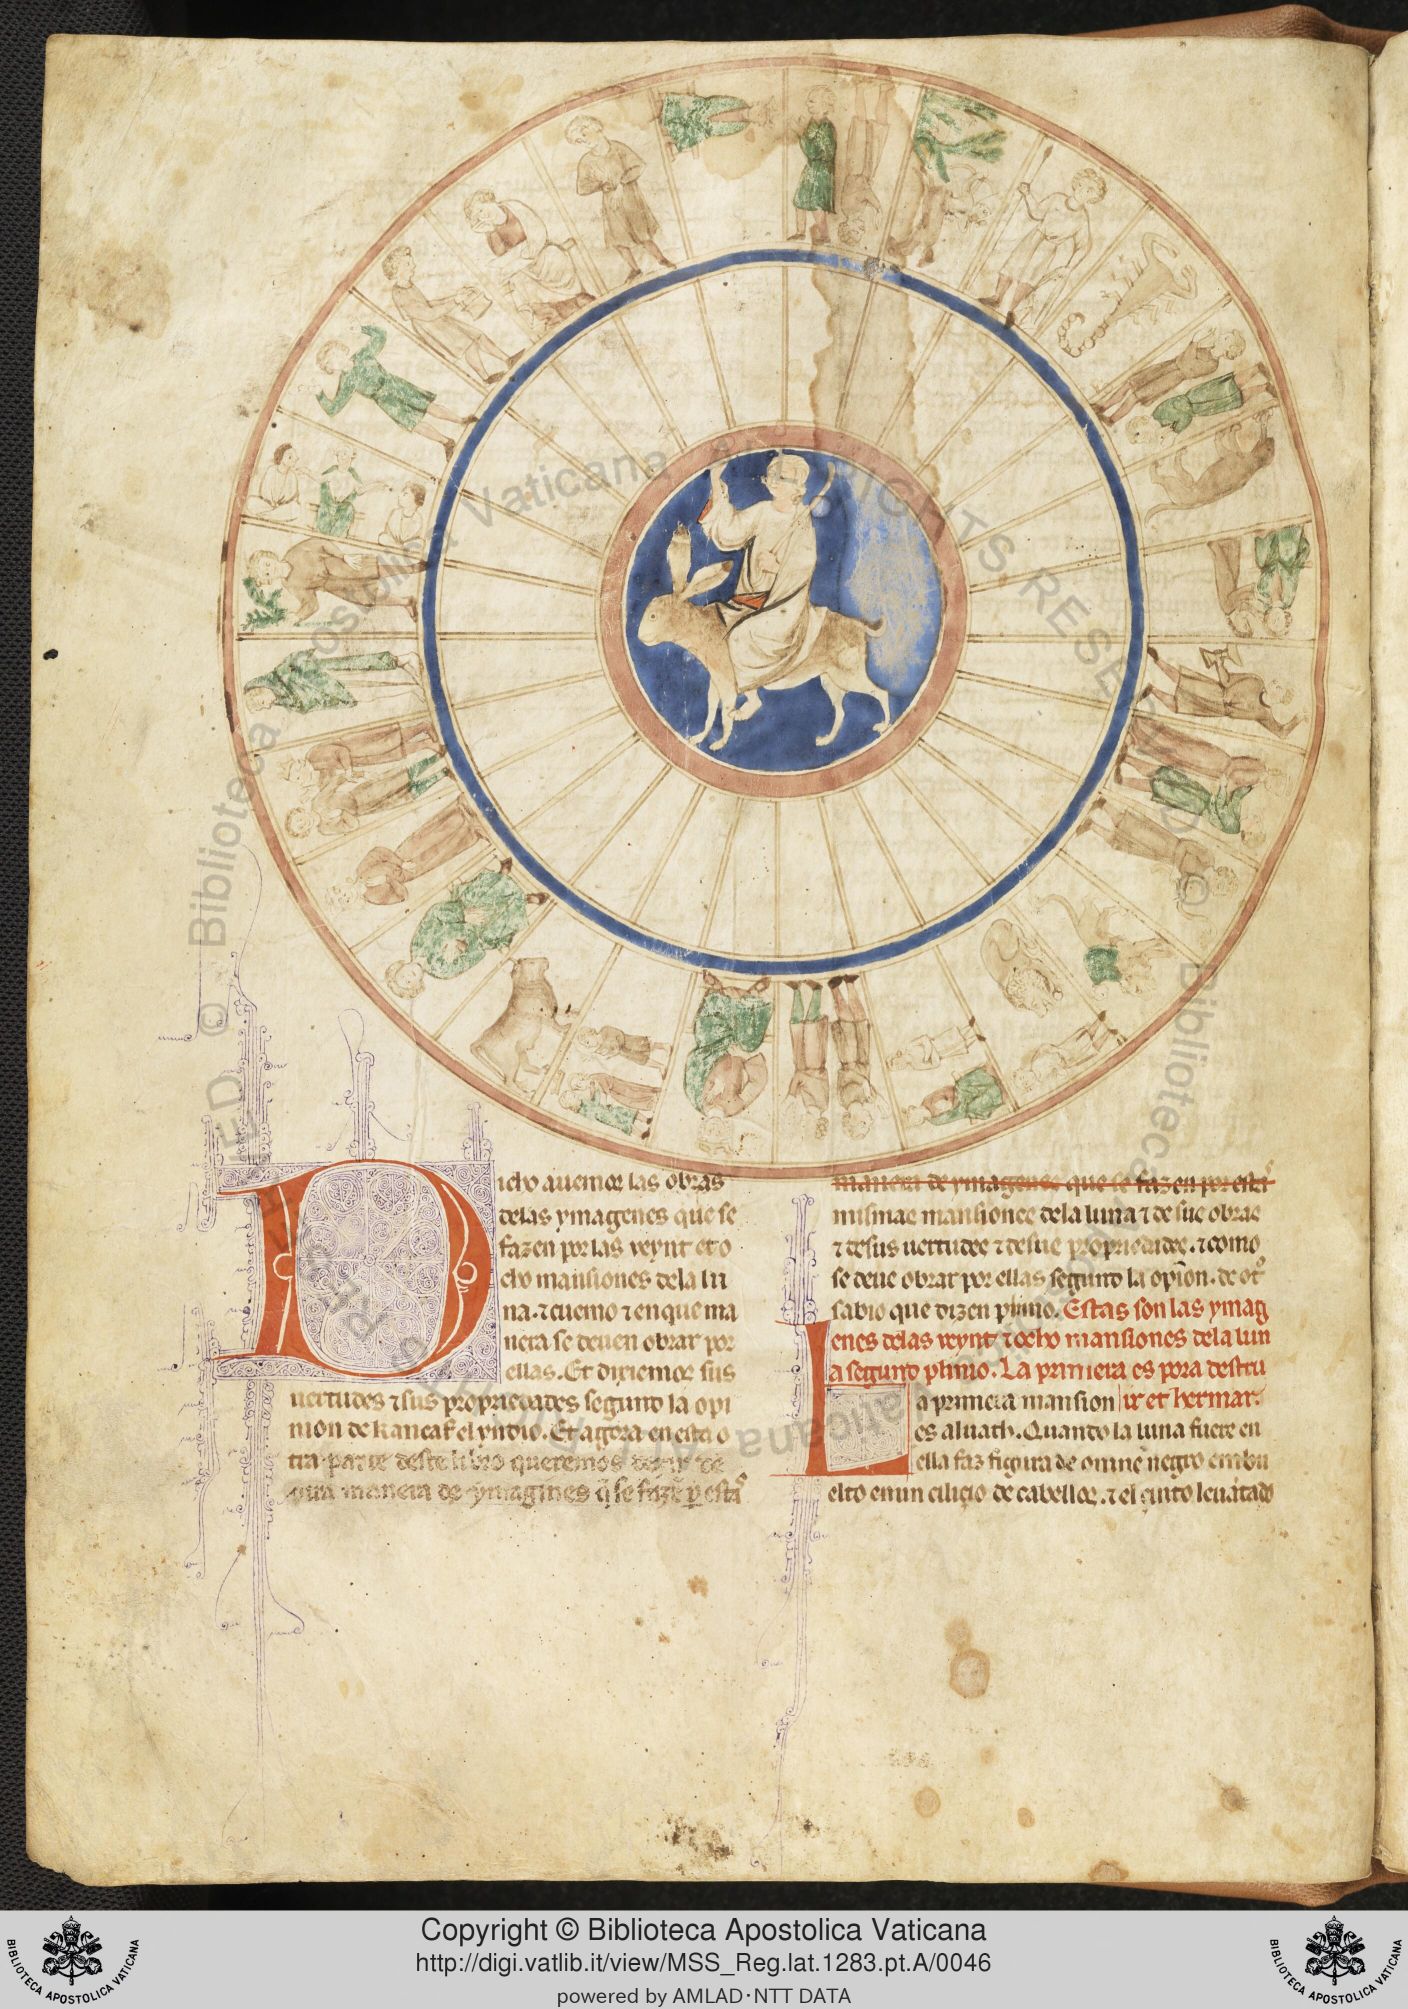 Dicho auemos las obras
delas ymagenes que se
fazen por las veynt et o
cho mansiones dela lu
na. ⁊ cuemo ⁊ en que ma
nera se deuen obrar por
ellas. Et dixiemos sus
uertudes ⁊ sus propriedades segund la opi
nion de kancaf el yndio. Et agora en esta o
tra parte deste libro queremos dezir de
otra manera de ymagines q̃ se fazẽ ꝑ estaˢ
manera de ymagenes que se fazen por estaˢ
mismas mansiones dela luna ⁊ de sus obras
⁊ desus uertudes ⁊ desus propriedades. ⁊ como
se deue obrar por ellas segund la opiõn. de otº
sabio que dizen plinio. Estas son las ymag
enes delas veynt ⁊ ocho mansiones dela lun
a segund plinio. La primera es pora destru
La primera mansion ir et hermar.
es aluath. Quando la luna fuere en
ella faz figura de omnẽ negro embu
elto en un cilicio de cabellos. ⁊ el cinto leuãtado
© Biblioteca Apostolica Vaticana ALL RIGHTS RESERVED
Copyright © Biblioteca Apostolica Vaticana
http://digi.vatlib.it/view/MSS_Reg.lat.1283.pt.A/0046
powered by AMLAD·NTT DATA
BIBLIOTECA APOSTOLICA VATICANA
BIBLIOTECA APOSTOLICA VATICANA